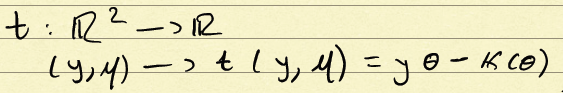 t : ℝ² —> ℝ
(y,μ) —> t (y,μ) = y θ - K(θ)